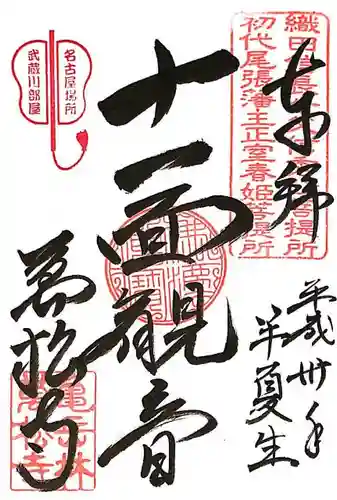 奉拝
織田信長 菩提所
初代尾張藩主正室春姫菩提所
十一面觀音
平成卅年
半夏生
萬松寺
亀岳林
萬松寺
名古屋場所
武蔵川部屋